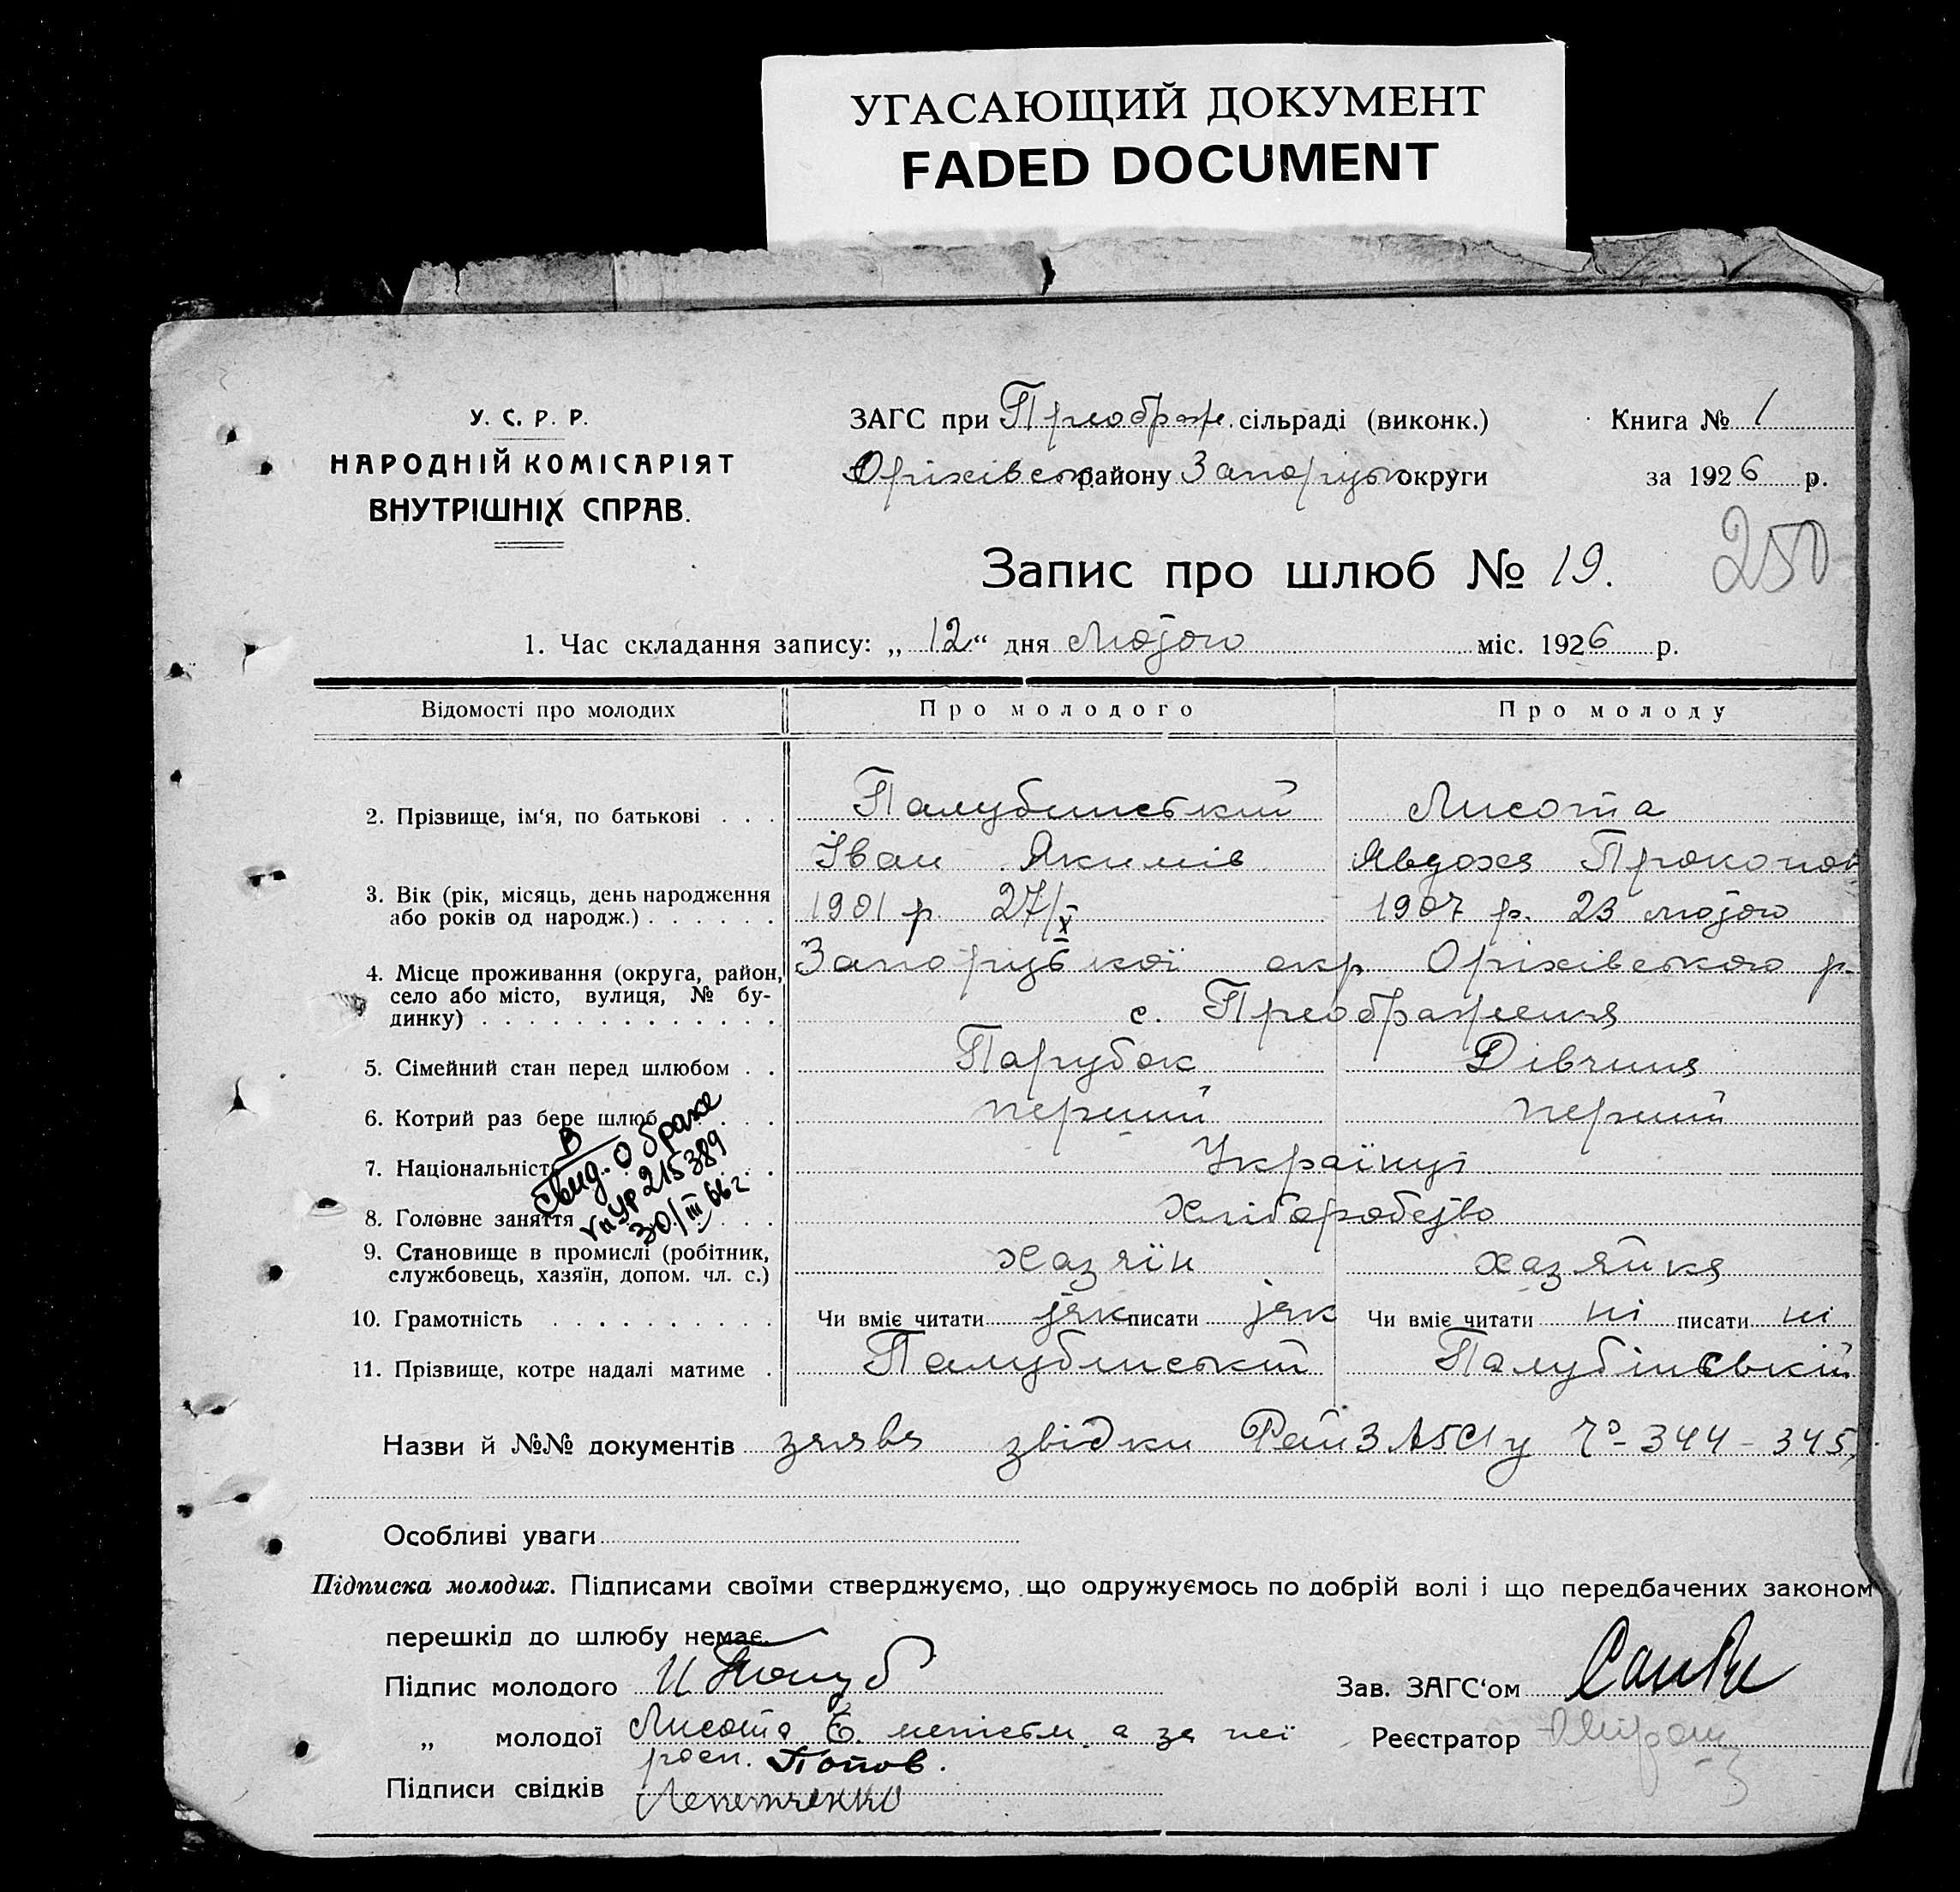 УГАСАЮЩИЙ ДОКУМЕНТ
FADED DOCUMENT
У. С. Р. Р.
НАРОДНІЙ КОМІСАРІЯТ
ВНУТРІШНІХ СПРАВ.
ЗАГС при Преображ. сільраді (виконк.)
Оріхівськ району Запоріцьк округи
Книга № 1
за 1926 р.
250
Запис про шлюб № 19.
1. Час складання запису: „ 12 “ дня лютого міс. 1926 р.
Відомості про молодих Про молодого Про молоду
2. Прізвище, ім'я, по батькові . . . Палубинський Лисота
Іван Якимів Явдоха Прокопов
3. Вік (рік, місяць, день народження
або років од народж.) . . . . . . 1901 р. 27/X 1907 р. 23 лютого
4. Місце проживання (округа, район, Запоріцької окр Оріхівського р-
село або місто, вулиця, № бу-
динку) . . . . . . . . . . . . . с. Преображення
5. Сімейний стан перед шлюбом . . Парубок Дівчина
6. Котрий раз бере шлюб . . . перший перший
7. Національність . Українці
8. Головне заняття . . . Хліборобство
В
свид. о браке
УР 215389
30/III 66г.
9. Становище в промислі (робітник,
службовець, хазяїн, допом. чл. с.) хазяїн хазяйка
10. Грамотність . . . . . . . . . . Чи вміє читати так писати так Чи вміє читати ні писати ні
11. Прізвище, котре надалі матиме . Палубинський Палубінській
Назви й №№ документів заява звідки РайЗАГСу № 344 - 345,
Особливі уваги
Підписка молодих. Підписами своїми стверджуємо, що одружуємось по добрій волі і що передбачених законом
перешкід до шлюбу немає.
Підпис молодого И Палуб
Зав. ЗАГС'ом
„ молодої Лисота Є. неписьм. а за неї
росп. Попов.
Реєстратор
Підписи свідків